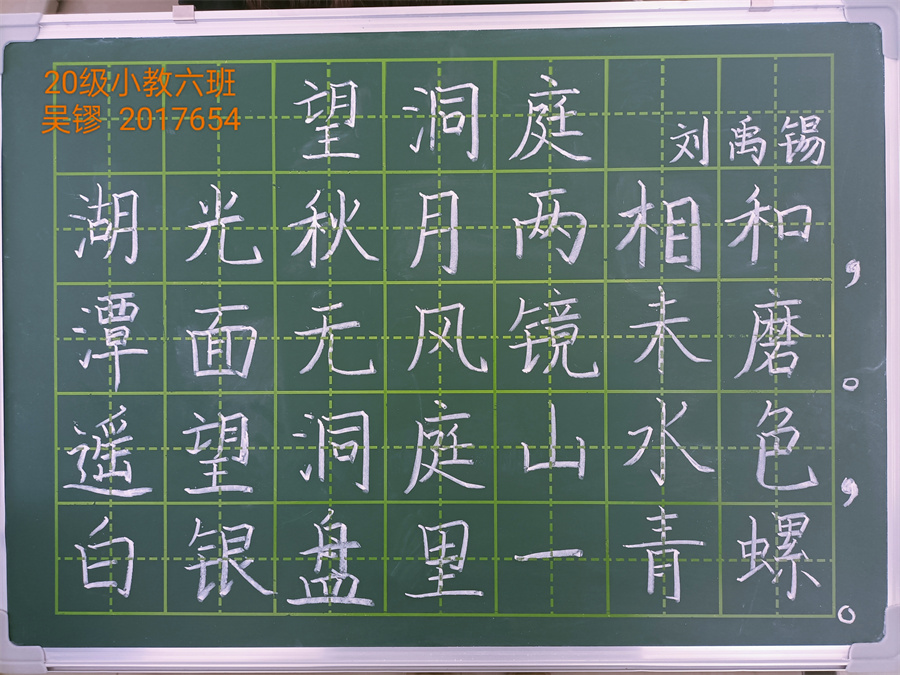 20级小教六班
吴镠 2017654
望洞庭
刘禹锡
湖光秋月两相和，
潭面无风镜未磨。
遥望洞庭山水色，
白银盘里一青螺。